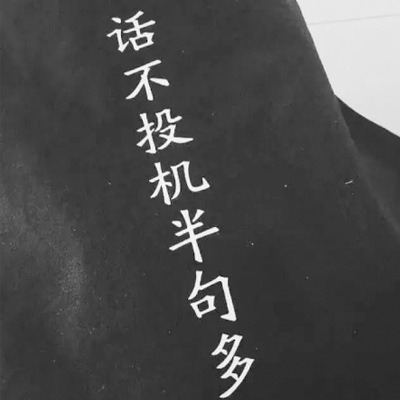 话不投机半句多